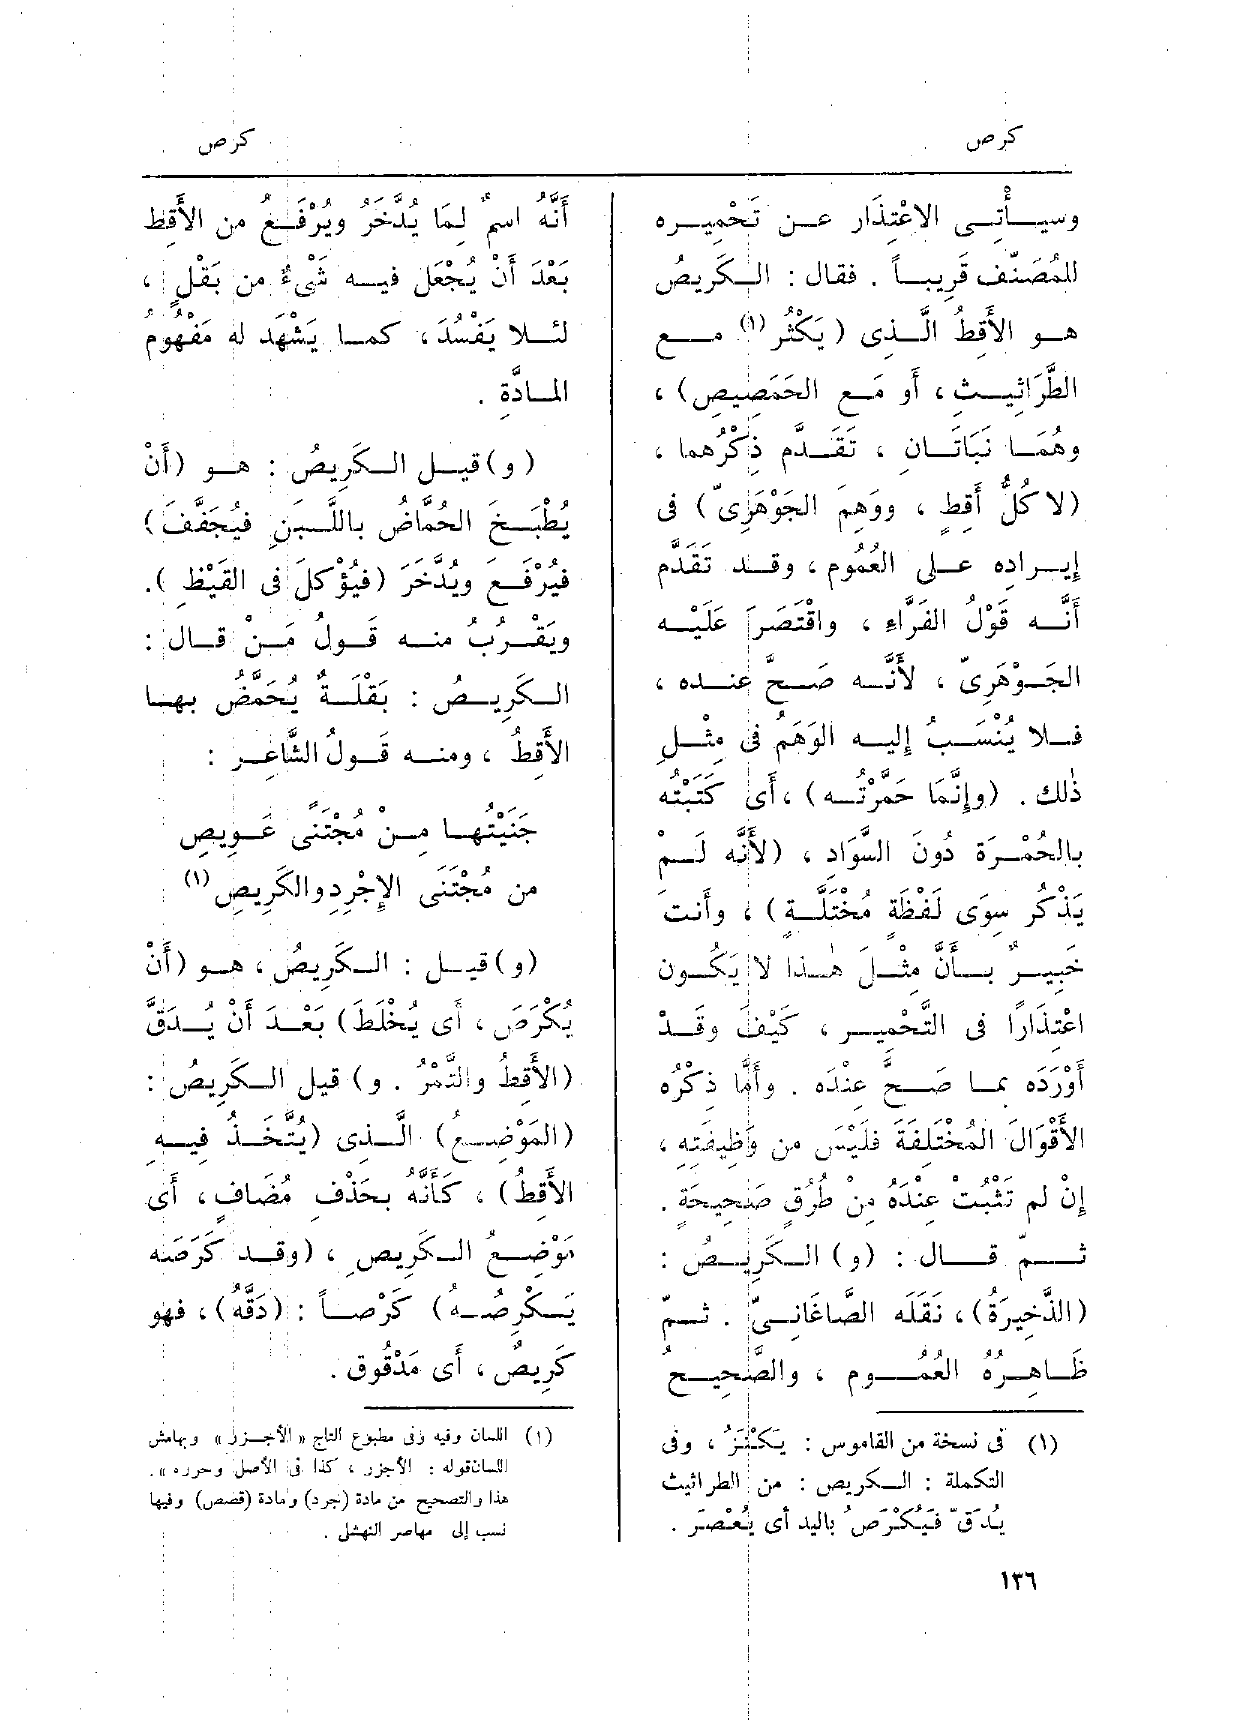 كرص
كرص
وسيأْتِى الاعْتِذَار عن تَحْمِيرِه
للمُصَنِّف قَرِيباً . فقال : الكَرِيصُ
هو الأَقِطُ الَّذِى (يَكْثُر (١) مع
الطَّرَاثِيثِ ، أَو مَع الحَمَصِيصِ) ،
وهُمَا نَبَاتَانِ ، تَقَدَّم ذِكْرُهما ،
(لا كُلُّ أَقِطٍ ، ووَهِمَ الجَوْهَرِىّ) فى
إيرادِه على العُمُومِ ، وقد تَقَدَّم
أَنَّه قَوْلُ الفَرَّاءِ ، واقْتَصَرَ عَلَيْه
الجَوْهَرِىّ ، لأَنَّه صَحَّ عِنده ،
فلا يُنْسَبُ إليه الوَهَمُ فى مِثْلِ
ذٰلك . (وإِنَّمَا حَمَّرْتُه) ، أَى كَتَبْتُه
بالحُمْرَة دُونَ السَّوَادِ ، (لأَنَّه لَمْ
يَذْكُر سِوَى لَفْظَةٍ مُخْتَلَّةٍ) ، وأَنت
خَبِيرٌ بأَنَّ مثْلَ هٰذا لا يَكُون
اعْتِذَارًا فى التَّحْمِير ، كَيْفَ وقَدْ
أَوْرَدَه بما صَحَّ عِنْدَه . وأَمَّا ذِكْرُه
الأَقْوَالَ المُخْتَلِفَةَ فلَيْسَ من وَظِيفَتِه ،
إنْ لم تَثْبُتْ عِنْدَهُ مِنْ طُرُقٍ صَحِيحَةٍ .
ثمّ قال : (و) الكَرِيصُ :
(الذَّخِيرَةُ) ، نَقَلَه الصَّاغَانِىّ . ثمّ
ظَاهِرُهُ العُمُومِ ، والصَّحِيحُ
(١) فى نسخة من القاموس : يَكْنُزُ ، وفى
التكملة : الكريص : من الطراثيث
يُدَقّ فَيُكْرَصُ باليد أى يُعْصَرَ .
أَنَّهُ اسمٌ لِمَا يُدَّخَرُ ويُرْفَعُ من الأَقِطِ
بَعْدَ أَنْ يُجْعَلَ فيه شَىْءٌ من بَقْلٍ ،
لئلا يَفْسُدَ ، كما يَشْهَدُ له مَفْهُومُ
المادَّةِ .
(و) قيل الكَرِيصُ : هو (أَنْ
يُطْبَخَ الحُمَّاض باللَّبَنِ فيُجَفَّفَ)
فيُرْفَعَ ويُدَّخَرَ (فيُؤْكلَ فى القَيْظِ ).
ويَقْرُبُ منه قَولُ مَنْ قال :
الكَرِيصُ : بَقْلَةٌ يُحَمَّضُ بها
الأَقِطُ ، ومنه قَولُ الشَّاعِر :
جَنَيْتُهَا مِنْ مُجْتَنًى عَوِيصِ
من مُجْتَنَى الإِجْرِدِ والكَرِيصِ (١)
(و) قيل : الكَرِيصُ ، هو (أَنْ
يُكْرَصَ ، أَى يُخْلَطَ) بَعْدَ أَنْ يُدَقَّ
(الأَقِطُ والتَّمْرُ . و) قيل الكَرِيصُ :
(المَوْضِعُ) الَّذى (يُتَّخَذُ فِيهِ
الأَقِطُ) ، كَأَنَّهُ بحَذْفِ مُضَافٍ ، أَى
مَوْضِعُ الكَرِيصِ ، (وقد كَرَصَه
يَكْرِصُهُ) كَرْصاً : (دَقَّهُ) ، فهو
كَرِيصٌ ، أَى مَدْقُوق .
(١) اللسان وفيه وفى مطبوع التاج «الأجزر» وبهامش
اللسان قوله : الأجزر ، كذا فى الأصل وحرره ».
هذا والتصحيح من مادة (جرد) ومادة (قصص) وفيها
نسب إلى مهاصر النهشلى .
١٣٦